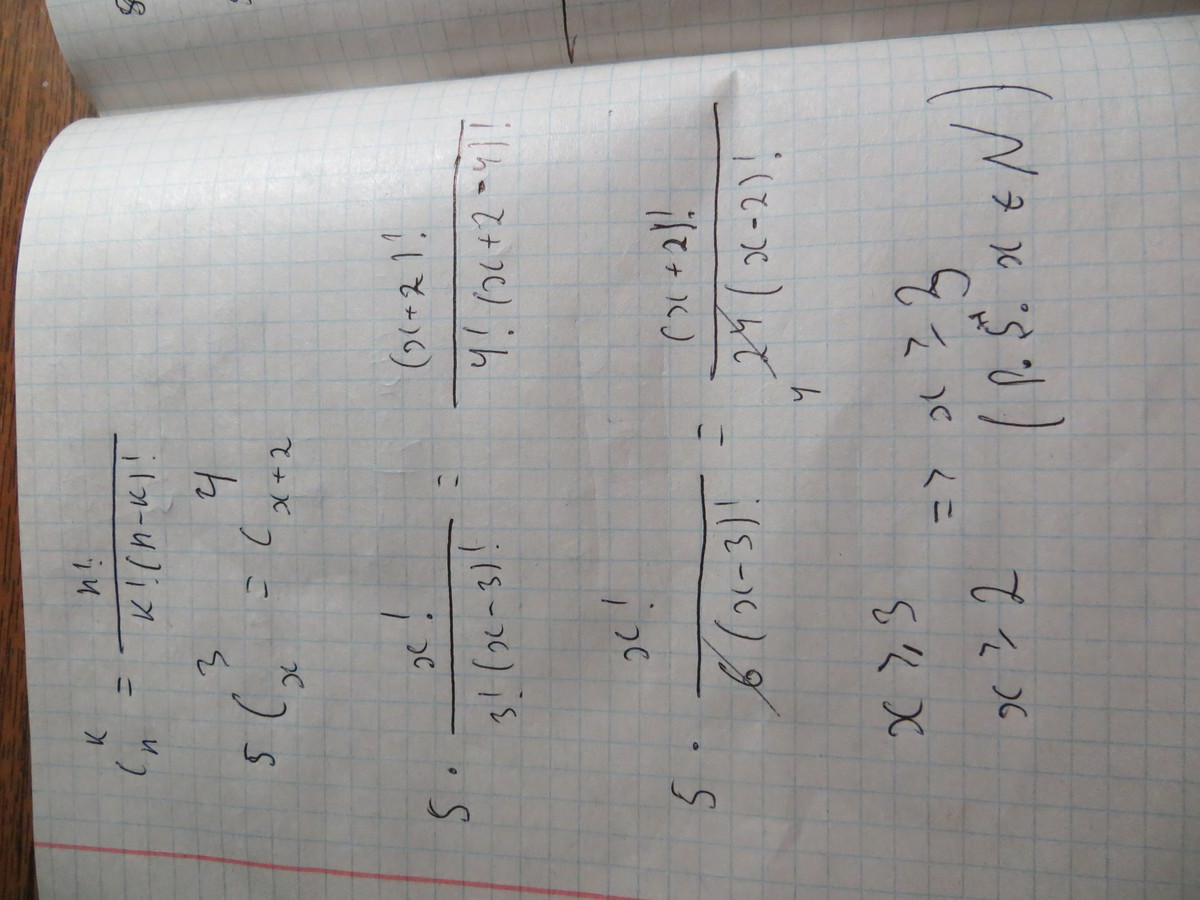 C_n^k = n! / k!(n-k)!
5 C_x^3 = C_{x+2}^4
5 · x! / 3!(x-3)! = (x+2)! / 4!(x+2-4)!
5 · x! / 6(x-3)! = (x+2)! / 24(x-2)!
4
x ⩾ 3 => x ⩾ 3
x ⩾ 2 (P.S. x ∈ N)